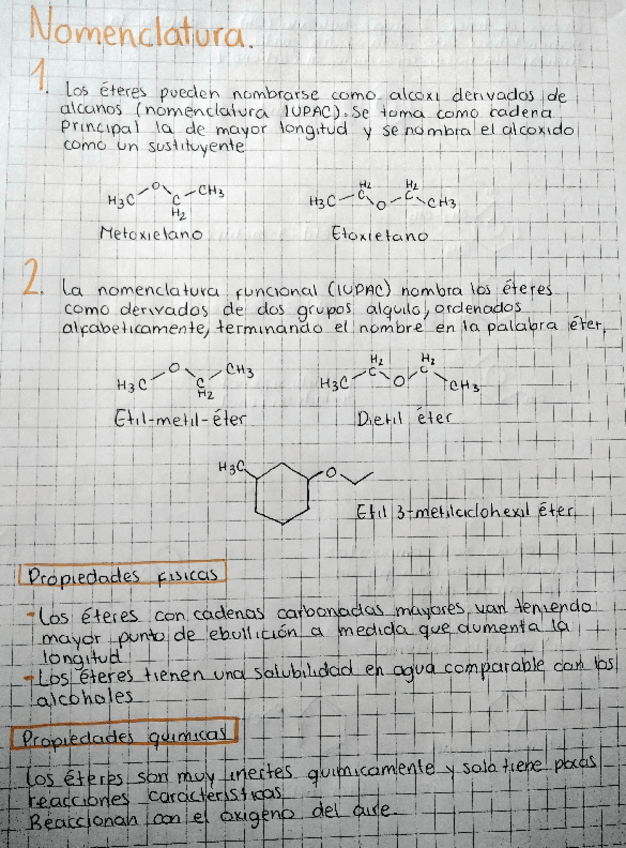 Nomenclatura.
1.
Los éteres pueden nombrarse como alcoxi derivados de
alcanos (nomenclatura IUPAC). Se toma como cadena
principal la de mayor longitud y se nombra el alcoxido
como un sustituyente
H3C O C H2 CH3
H3C C H2 O C H2 CH3
Metoxietano
Etoxietano
2.
La nomenclatura funcional (IUPAC) nombra los éteres
como derivados de dos grupos alquilo, ordenados
alfabeticamente, terminando el nombre en la palabra éter,
H3C O C H2 CH3
H3C C H2 O C H2 CH3
Etil-metil-éter
Dietil éter
H3C O
Etil 3-metilciclohexil éter,
Propiedades fisicas
-Los éteres con cadenas carbonadas mayores van teniendo
mayor punto de ebullición a medida que aumenta la
longitud
-Los éteres tienen una solubilidad en agua comparable con los
alcoholes
Propiedades quimicas
Los éteres son muy inertes quimicamente y solo tiene pocas
reacciones caracteristicas
Reaccionan con el oxigeno del aire.